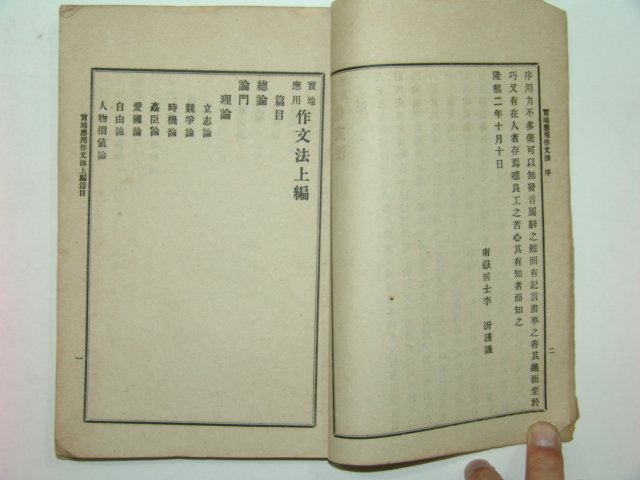 實地應用作文法 序
序用力不多便可以無發音屬辭之艱而有記言書事之善其進而至於
巧又有在人者存焉噫良工之苦心其有知者而知之
隆熙二年十月十日
南嶽居士李 沂謹識
二
實地應用作文法上編
篇目
總論
論門
理論
立志論
競爭論
時機論
姦臣論
愛國論
自由論
人物價値論
實地應用作文法上編篇目
一